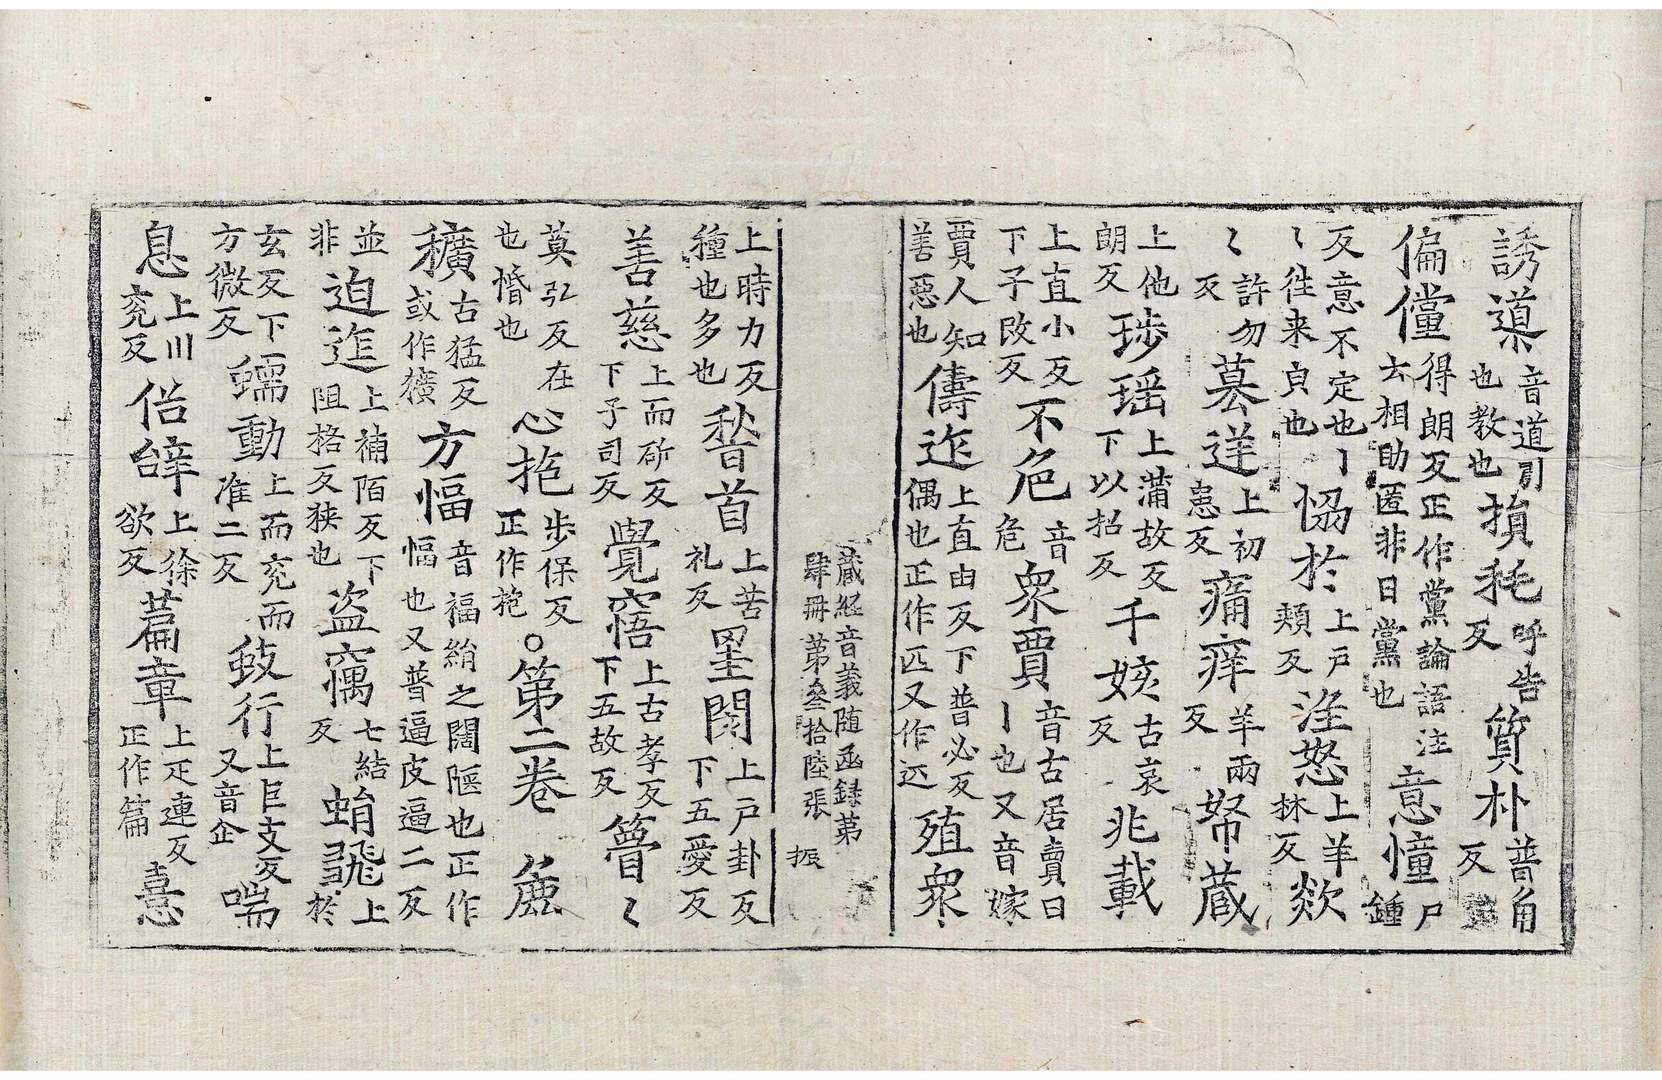 誘導音道引也教也損秏呼告反質朴普角反
偏儻得朗反正作黨論語注云相助匿非曰黨也意憧尸鍾
反意不定也〡〻往来皃也恊於上戸頬反淫怒上羊林反欻
〻許勿反募逆上初患反痛痒羊兩反帑蔵
上他朗反琗瑶上蒲故反下以招反千姟古哀反兆載
上直小反下子改反不色音危衆賈音古居賣曰〡也又音嫁
賈人知善惡也儔迮上直由反下普必反偶也正作匹又作迊殖衆
藏經音義随函録第肆冊第叁拾陸張 振
上時力反種也多也嵆首上苦礼反罣閡上戸卦反下五愛反
善慈上而斫反下子司反覺寤上古孝反下五故反簹〻
莫弘反在也惛也心抱步保反正作抱○第二卷 麁
穬古猛反或作獷方幅音福絹之闊陿也正作幅也又普逼皮逼二反
並非迫迮上補陌反下阻格反狭也盗竊七結反蛸蜚上於
玄反下方微反蠕動上而兖而准二反蚑行上巨支反又音企喘
息上川兖反俗辤上徐欲反篇章上疋連反正作篇憙